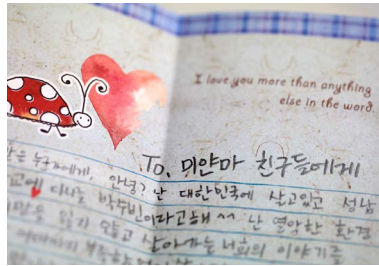 I love you more than anything
else in the word.
To. 미얀마 친구들에게
누군가에게, 안녕? 난 대한민국에 살고있고 성남
다니는 박수빈이라고해 ^^ 난 열악한 환경
잃지 않고 살아가는 너희의 이야기를